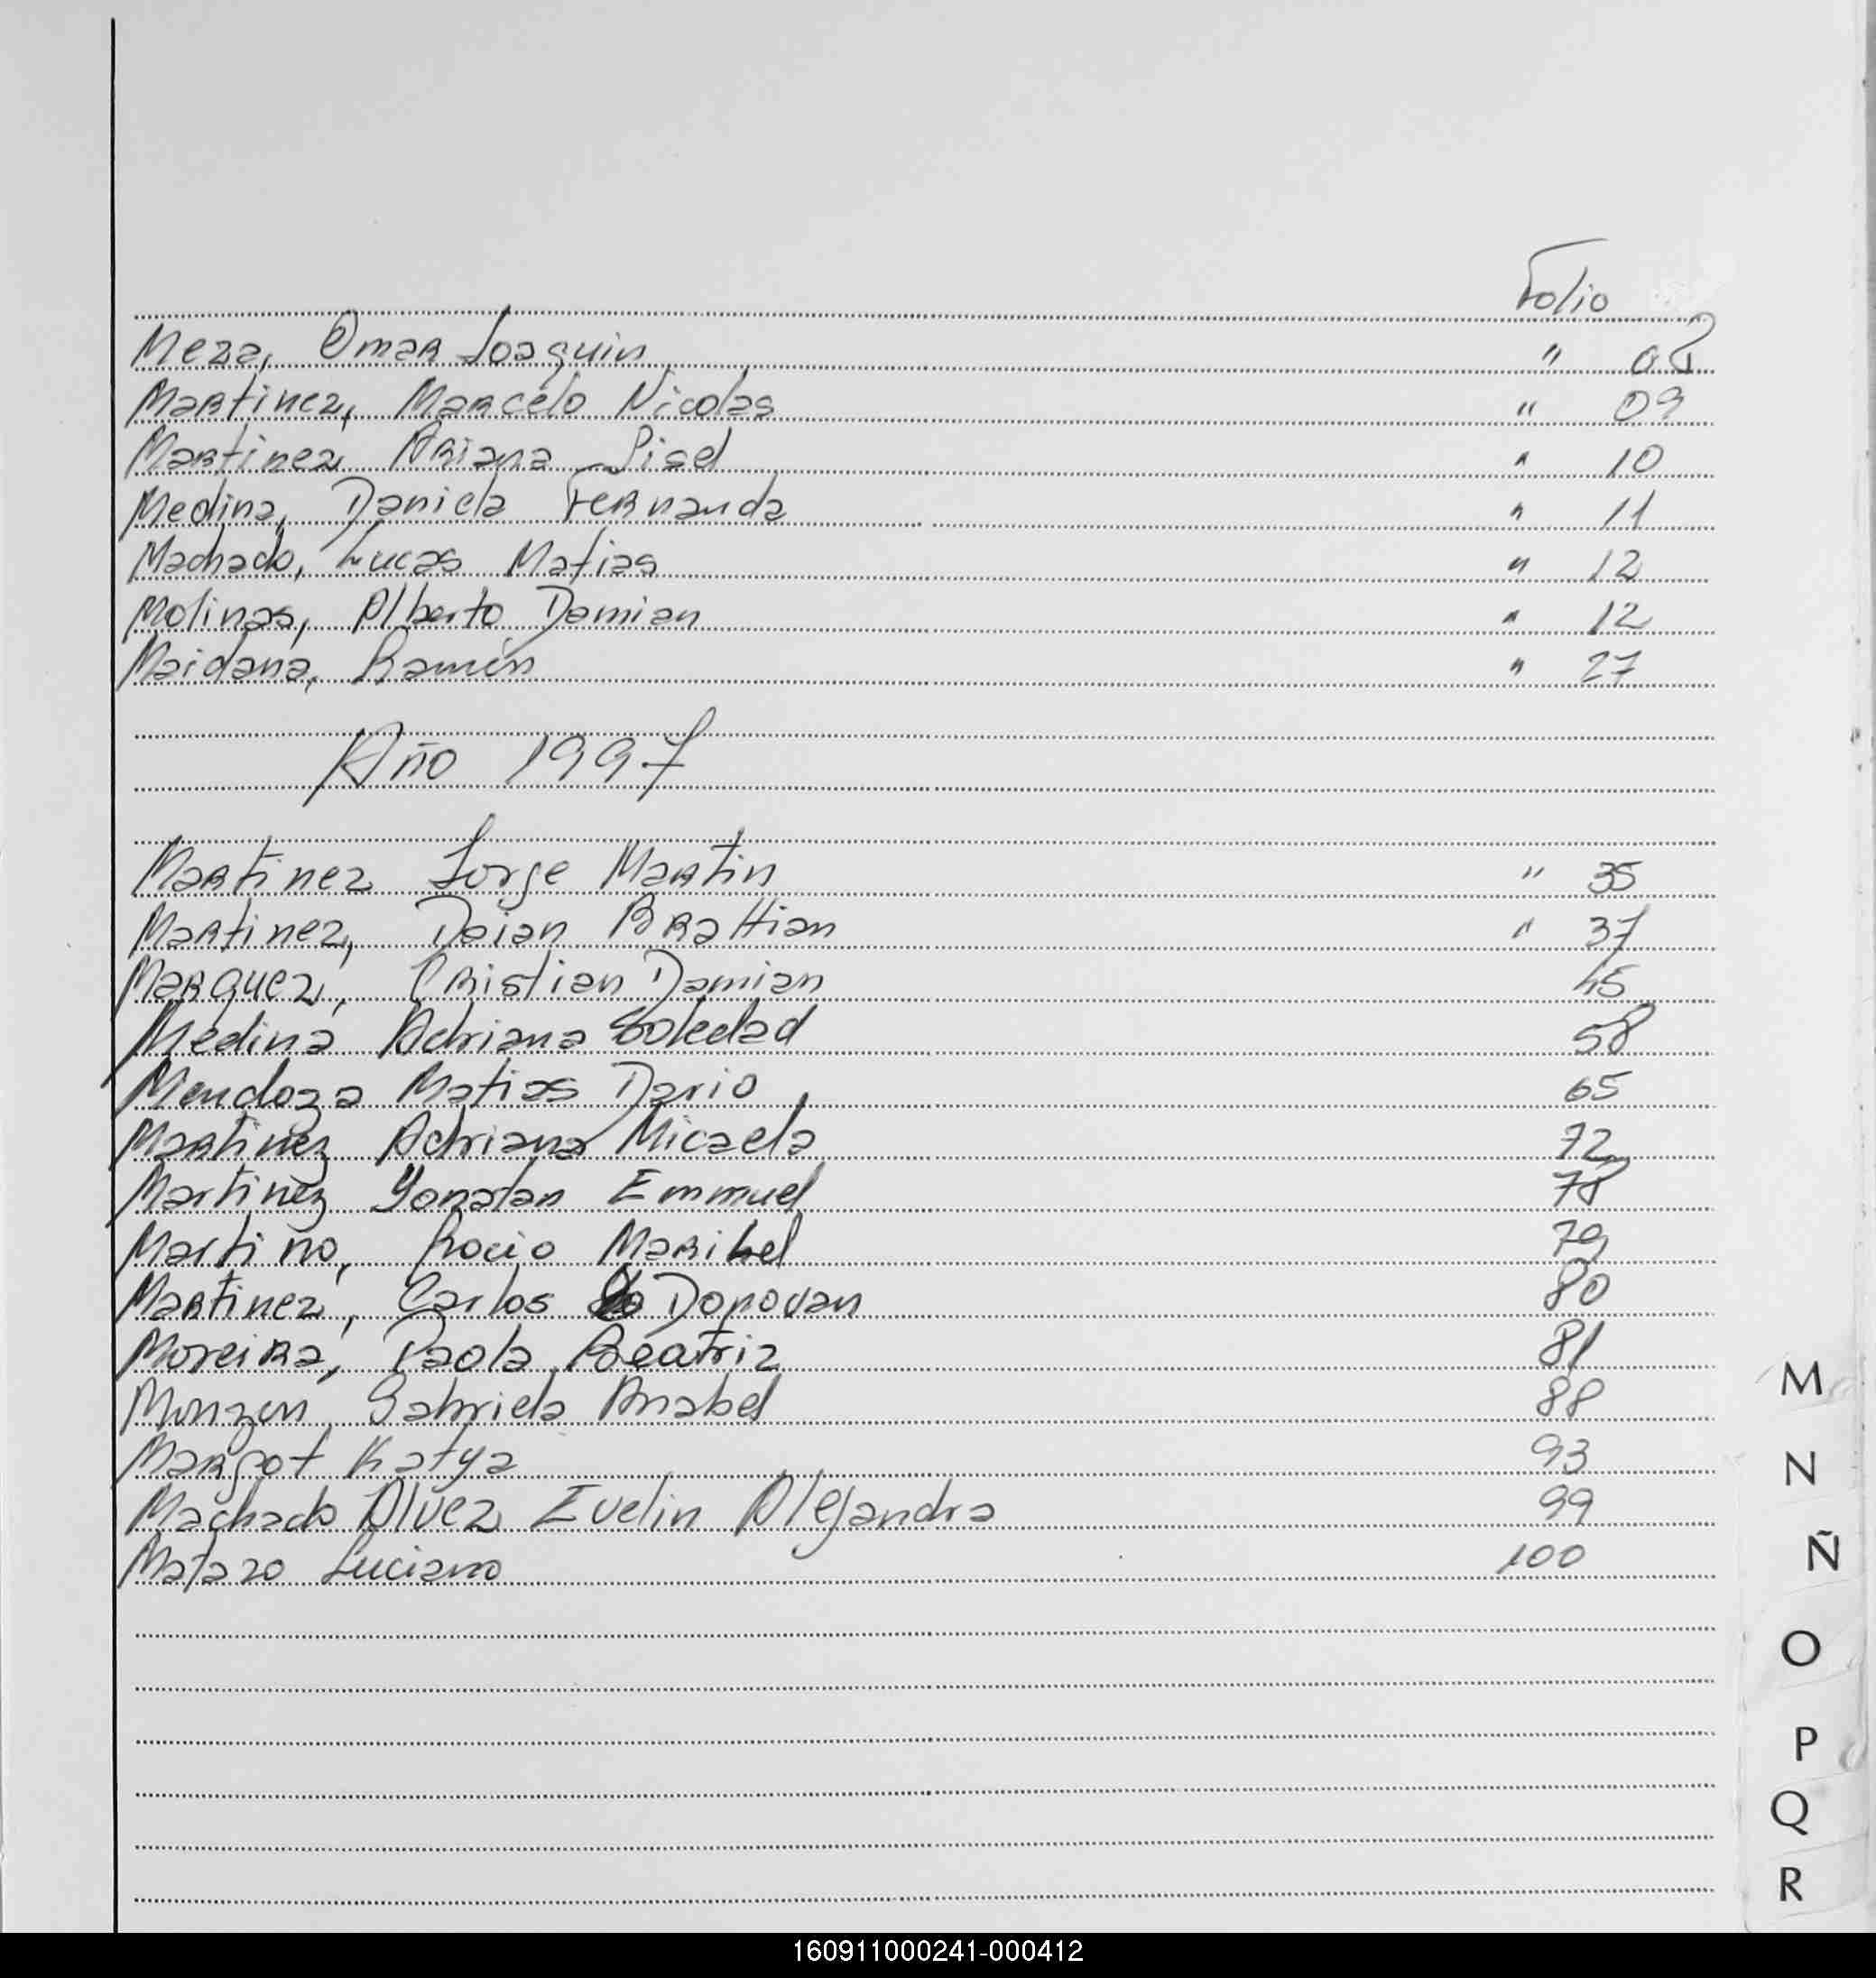 Folio
Meza, Omar Joaquin " 08
Martinez, Marcelo Nicolas " 09
Martinez Ariana Gisel " 10
Medina, Daniela Fernanda " 11
Machado, Lucas Matias " 12
Molinas, Alberto Damian " 12
Maidana, Ramón " 27
Año 1997
Martinez Jorge Martin " 35
Martinez, Daian Brattian " 37
Marquez, Cristian Damian 45
Medina Adriana Soledad 58
Mendoza Matias Dario 65
Martinez Adriana Micaela 72
Martinez Yonatan Emmuel 78
Martino, Rocio Maribel 79
Martinez, Carlos Donovan 80
Moreira, Paola Beatriz 81
Monzon, Gabriela Anabel 88
Margot Katya 93
Machado Alvez Evelin Alejandra 99
Matazo Luciano 100
M
N
Ñ
O
P
Q
R
160911000241-000412